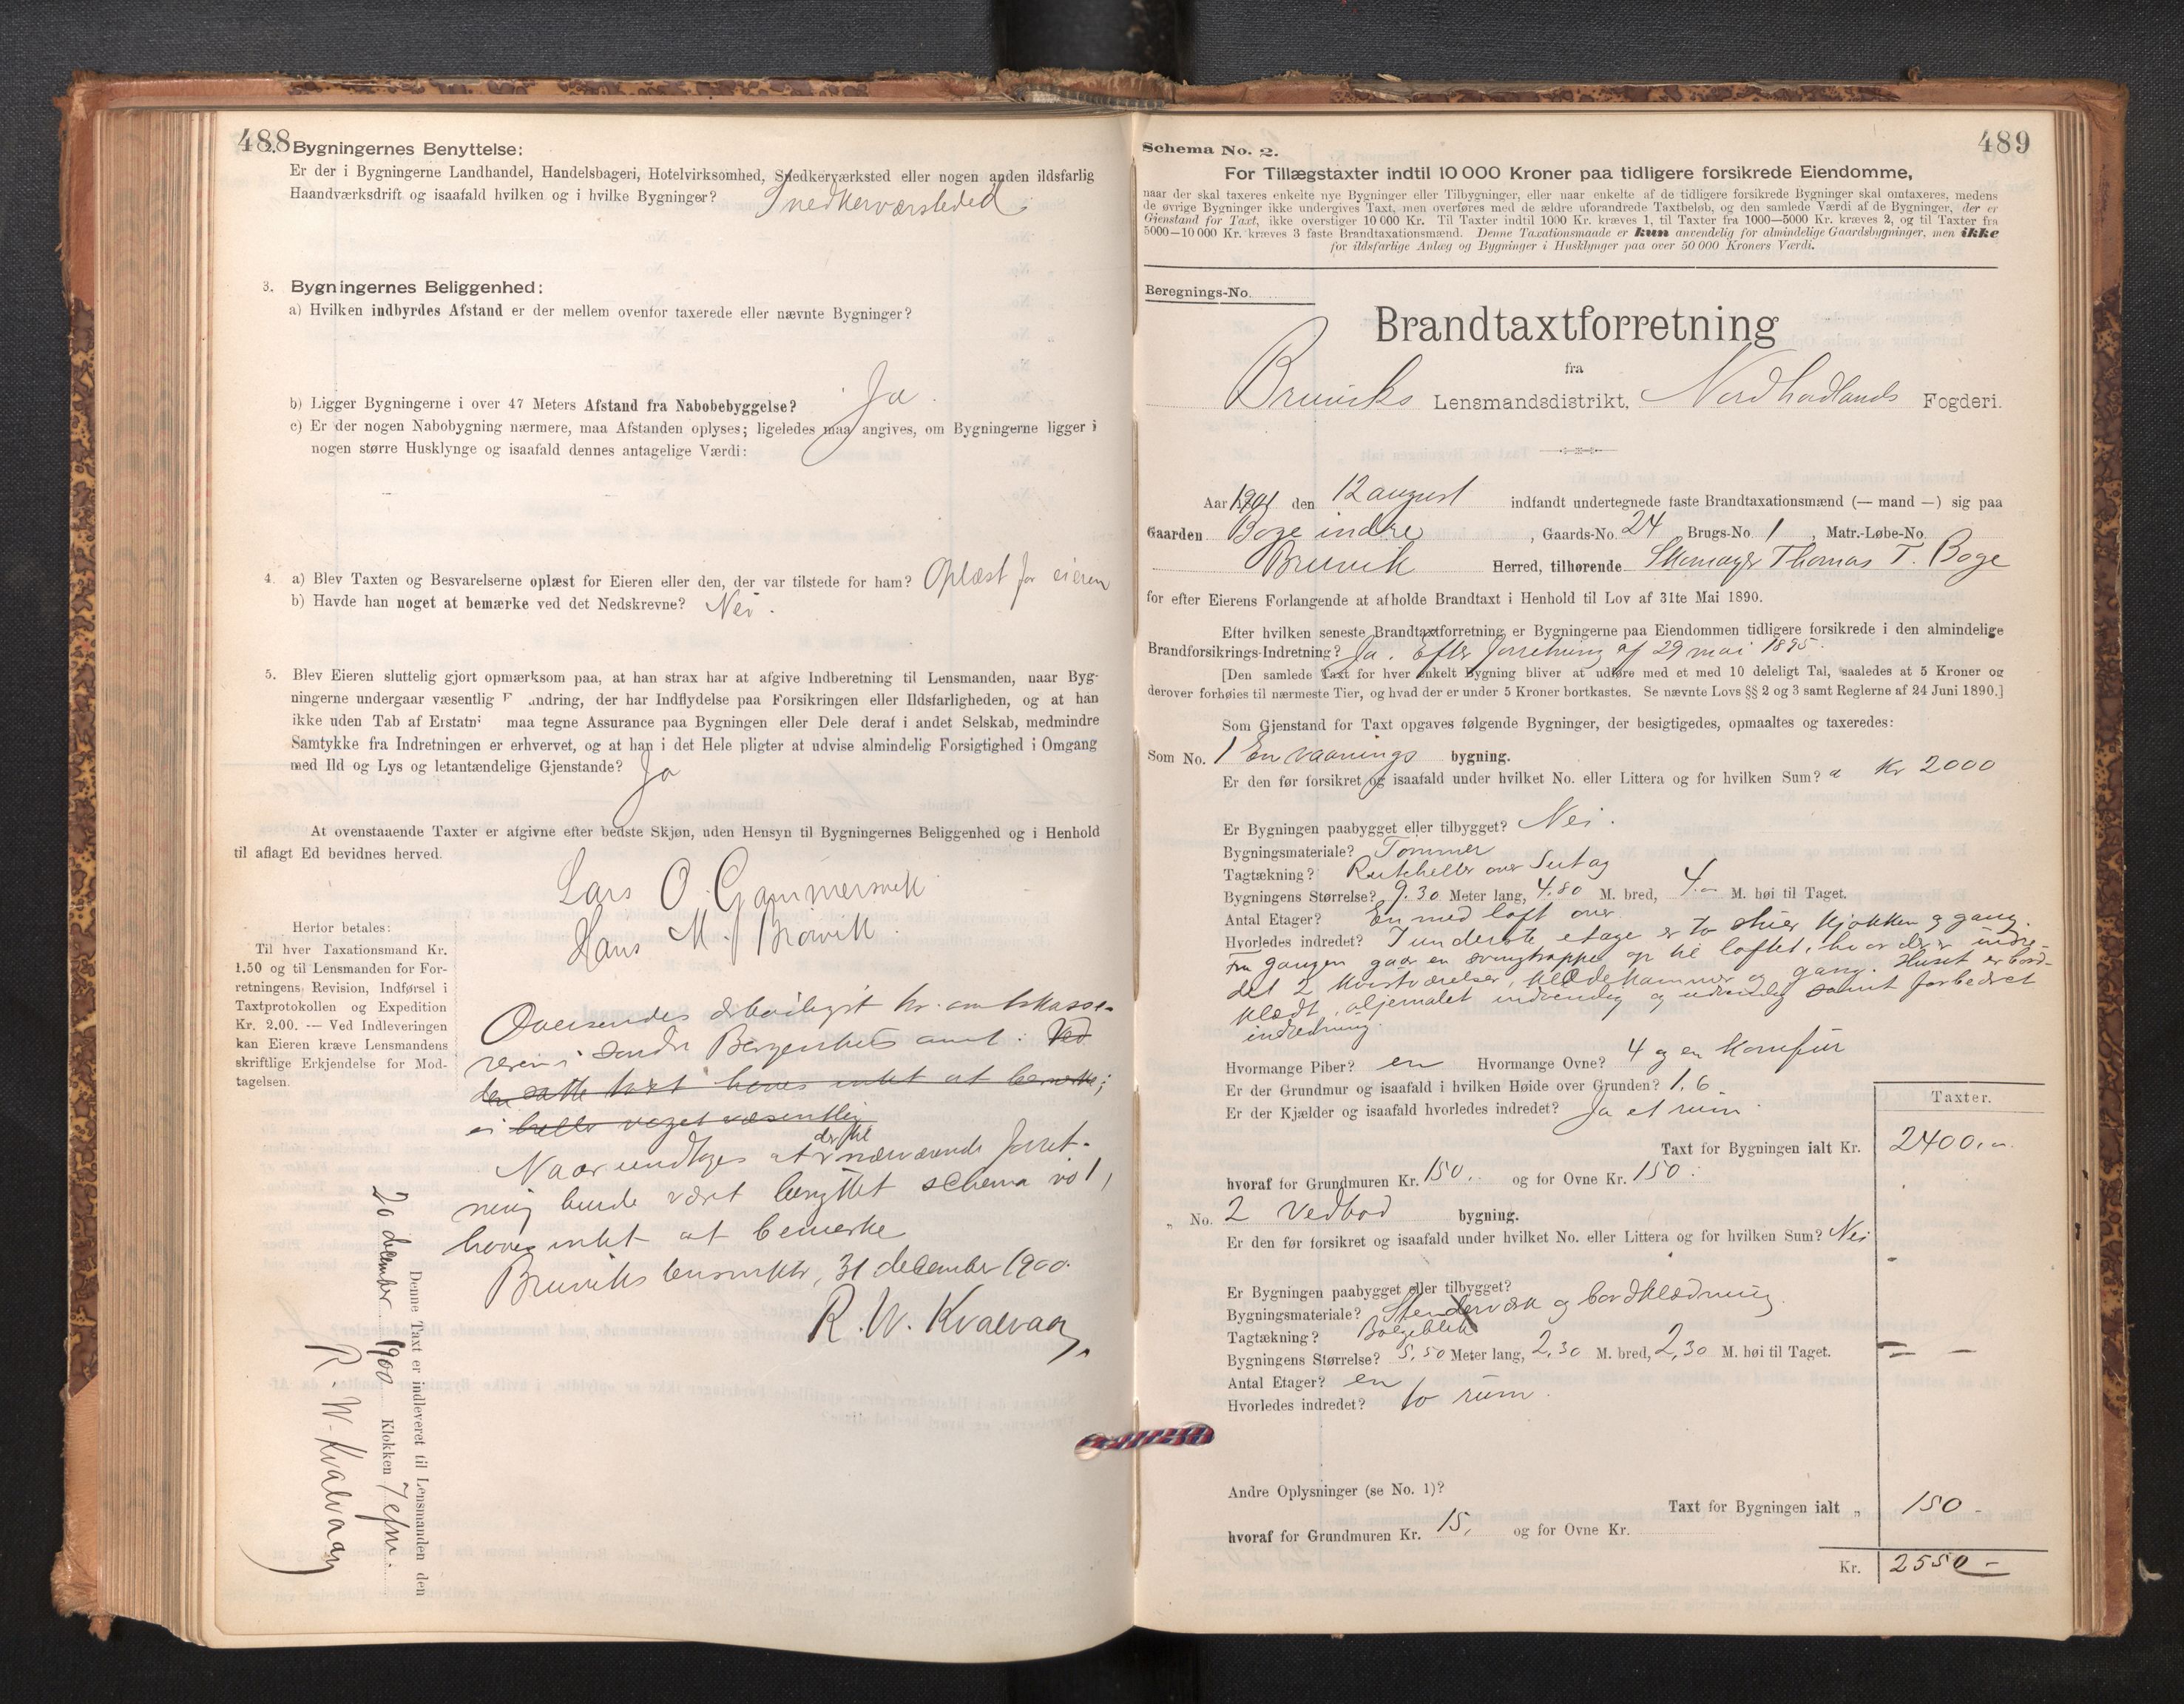 488
2. Bygningernes Benyttelse:
Er der i Bygningerne Landhandel, Handelsbageri, Hotelvirksomhed, Snedkerværksted eller nogen anden ildsfarlig
Haandværksdrift og isaafald hvilken og i hvilke Bygninger? Snedkerværksted
3. Bygningernes Beliggenhed:
a) Hvilken indbyrdes Afstand er der mellem ovenfor taxerede eller nævnte Bygninger?
b) Ligger Bygningerne i over 47 Meters Afstand fra Nabobebyggelse? Ja.
c) Er der nogen Nabobygning nærmere, maa Afstanden oplyses; ligeledes maa angives, om Bygningerne ligger i
nogen større Husklynge og isaafald dennes antagelige Værdi:
4. a) Blev Taxten og Besvarelserne oplæst for Eieren eller den, der var tilstede for ham? Oplæst for eieren
b) Havde han noget at bemærke ved det Nedskrevne? Nei.
5. Blev Eieren sluttelig gjort opmærksom paa, at han strax har at afgive Indberetning til Lensmanden, naar Byg-
ningerne undergaar væsentlig F andring, der har Indflydelse paa Forsikringen eller Ildsfarligheden, og at han
ikke uden Tab af Erstatni maa tegne Assurance paa Bygningen eller Dele deraf i andet Selskab, medmindre
Samtykke fra Indretningen er erhvervet, og at han i det Hele pligter at udvise almindelig Forsigtighed i Omgang
med Ild og Lys og letantændelige Gjenstande? Ja
At ovenstaaende Taxter er afgivne efter bedste Skjøn, uden Hensyn til Bygningernes Beliggenhed og i Henhold
til aflagt Ed bevidnes herved.
Lars O. Gammersvik
Hans M. Brørvik
Herfor betales:
Til hver Taxationsmand Kr.
1.50 og til Lensmanden for For-
retningens Revision, Indførsel i
Taxtprotokollen og Expedition
Kr. 2.00. — Ved Indleveringen
kan Eieren kræve Lensmandens
skriftlige Erkjendelse for Mod-
tagelsen.
Oversendes ærbødigst hr. amtskasse-
reren i Søndre Bergenhus amt. Ved
den satte taxt haves intet at bemerke;
ei heller noget væsentlig
Naar undtages at der til nærværende forret-
ning burde været benyttet schema no 1,
haves intet at bemerke
Bruviks lensmktr, 31 december 1900.
R. W. Kvalvaag
Denne Taxt er indleveret til Lensmanden den
20 december 1900 Klokken 7 efm.
R. W. Kvalvaag
489
Schema No. 2.
For Tillægstaxter indtil 10 000 Kroner paa tidligere forsikrede Eiendomme,
naar der skal taxeres enkelte nye Bygninger eller Tilbygninger, eller naar enkelte af de tidligere forsikrede Bygninger skal omtaxeres, medens
de øvrige Bygninger ikke undergives Taxt, men overføres med de ældre uforandrede Taxtbeløb, og den samlede Værdi af de Bygninger, der er
Gjenstand for Taxt, ikke overstiger 10 000 Kr. Til Taxter indtil 1000 Kr. kræves 1, til Taxter fra 1000—5000 Kr. kræves 2, og til Taxter fra
5000—10 000 Kr. kræves 3 faste Brandtaxationsmænd. Denne Taxationsmaade er kun anvendelig for almindelige Gaardsbygninger, men ikke
for ildsfarlige Anlæg og Bygninger i Husklynger paa over 50 000 Kroners Værdi.
Beregnings-No.
Brandtaxtforretning
fra
Bruviks Lensmandsdistrikt, Nordhordlands Fogderi.
Aar 1901 den 12 august indfandt undertegnede faste Brandtaxationsmænd (— mand —) sig paa
Gaarden Boge indre, Gaards-No. 24 Brugs-No. 1, Matr.-Løbe-No.
Bruvik Herred, tilhørende Skomager Thomas T. Boge
for efter Eierens Forlangende at afholde Brandtaxt i Henhold til Lov af 31te Mai 1890.
Efter hvilken seneste Brandtaxtforretning er Bygningerne paa Eiendommen tidligere forsikrede i den almindelige
Brandforsikrings-Indretning? Ja. Efter forretning af 29 mai 1895.
[Den samlede Taxt for hver enkelt Bygning bliver at udføre med et med 10 deleligt Tal, saaledes at 5 Kroner og
derover forhøies til nærmeste Tier, og hvad der er under 5 Kroner bortkastes. Se nævnte Lovs §§ 2 og 3 samt Reglerne af 24 Juni 1890.]
Som Gjenstand for Taxt opgaves følgende Bygninger, der besigtigedes, opmaaltes og taxeredes:
Som No. 1 En vaanings bygning.
Er den før forsikret og isaafald under hvilket No. eller Littera og for hvilken Sum? a Kr 2000
Er Bygningen paabygget eller tilbygget? Nei.
Bygningsmateriale? Tømmer
Tagtækning? Rutheller over Sutag
Bygningens Størrelse? 9.30 Meter lang, 4.80 M. bred, 4.— M. høi til Taget.
Antal Etager? En med loft over.
Hvorledes indredet? I underste etage er to stuer kjøkken og gang.
Fra gangen gaar en svingtrappe op til loftet, hvor der er indre-
det 2 kvistværelser, klædekammer og gang. Huset er bord-
klædt, oljemalet indvendig og udvendig samt forbedret
indredning.
Hvormange Piber? en Hvormange Ovne? 4 og en komfür
Er der Grundmur og isaafald i hvilken Høide over Grunden? 1,6
Er der Kjælder og isaafald hvorledes indredet? Ja et rum.
Taxter.
Taxt for Bygningen ialt Kr. 2400,—
hvoraf for Grundmuren Kr. 150. og for Ovne Kr. 150.
„ No. 2 Vedbod bygning.
Er den før forsikret og isaafald under hvilket No. eller Littera og for hvilken Sum? Nei
Er Bygningen paabygget eller tilbygget?
Bygningsmateriale? Stenderværk og bordklædning.
Tagtækning? Bølgeblik
Bygningens Størrelse? 5,50 Meter lang, 2,30 M. bred, 2,30 M. høi til Taget.
Antal Etager? en
Hvorledes indredet? to rum.
Andre Oplysninger (se No. 1)?
Taxt for Bygningen ialt „ 150 -
hvoraf for Grundmuren Kr. 15, og for Ovne Kr.
Kr. 2550 –